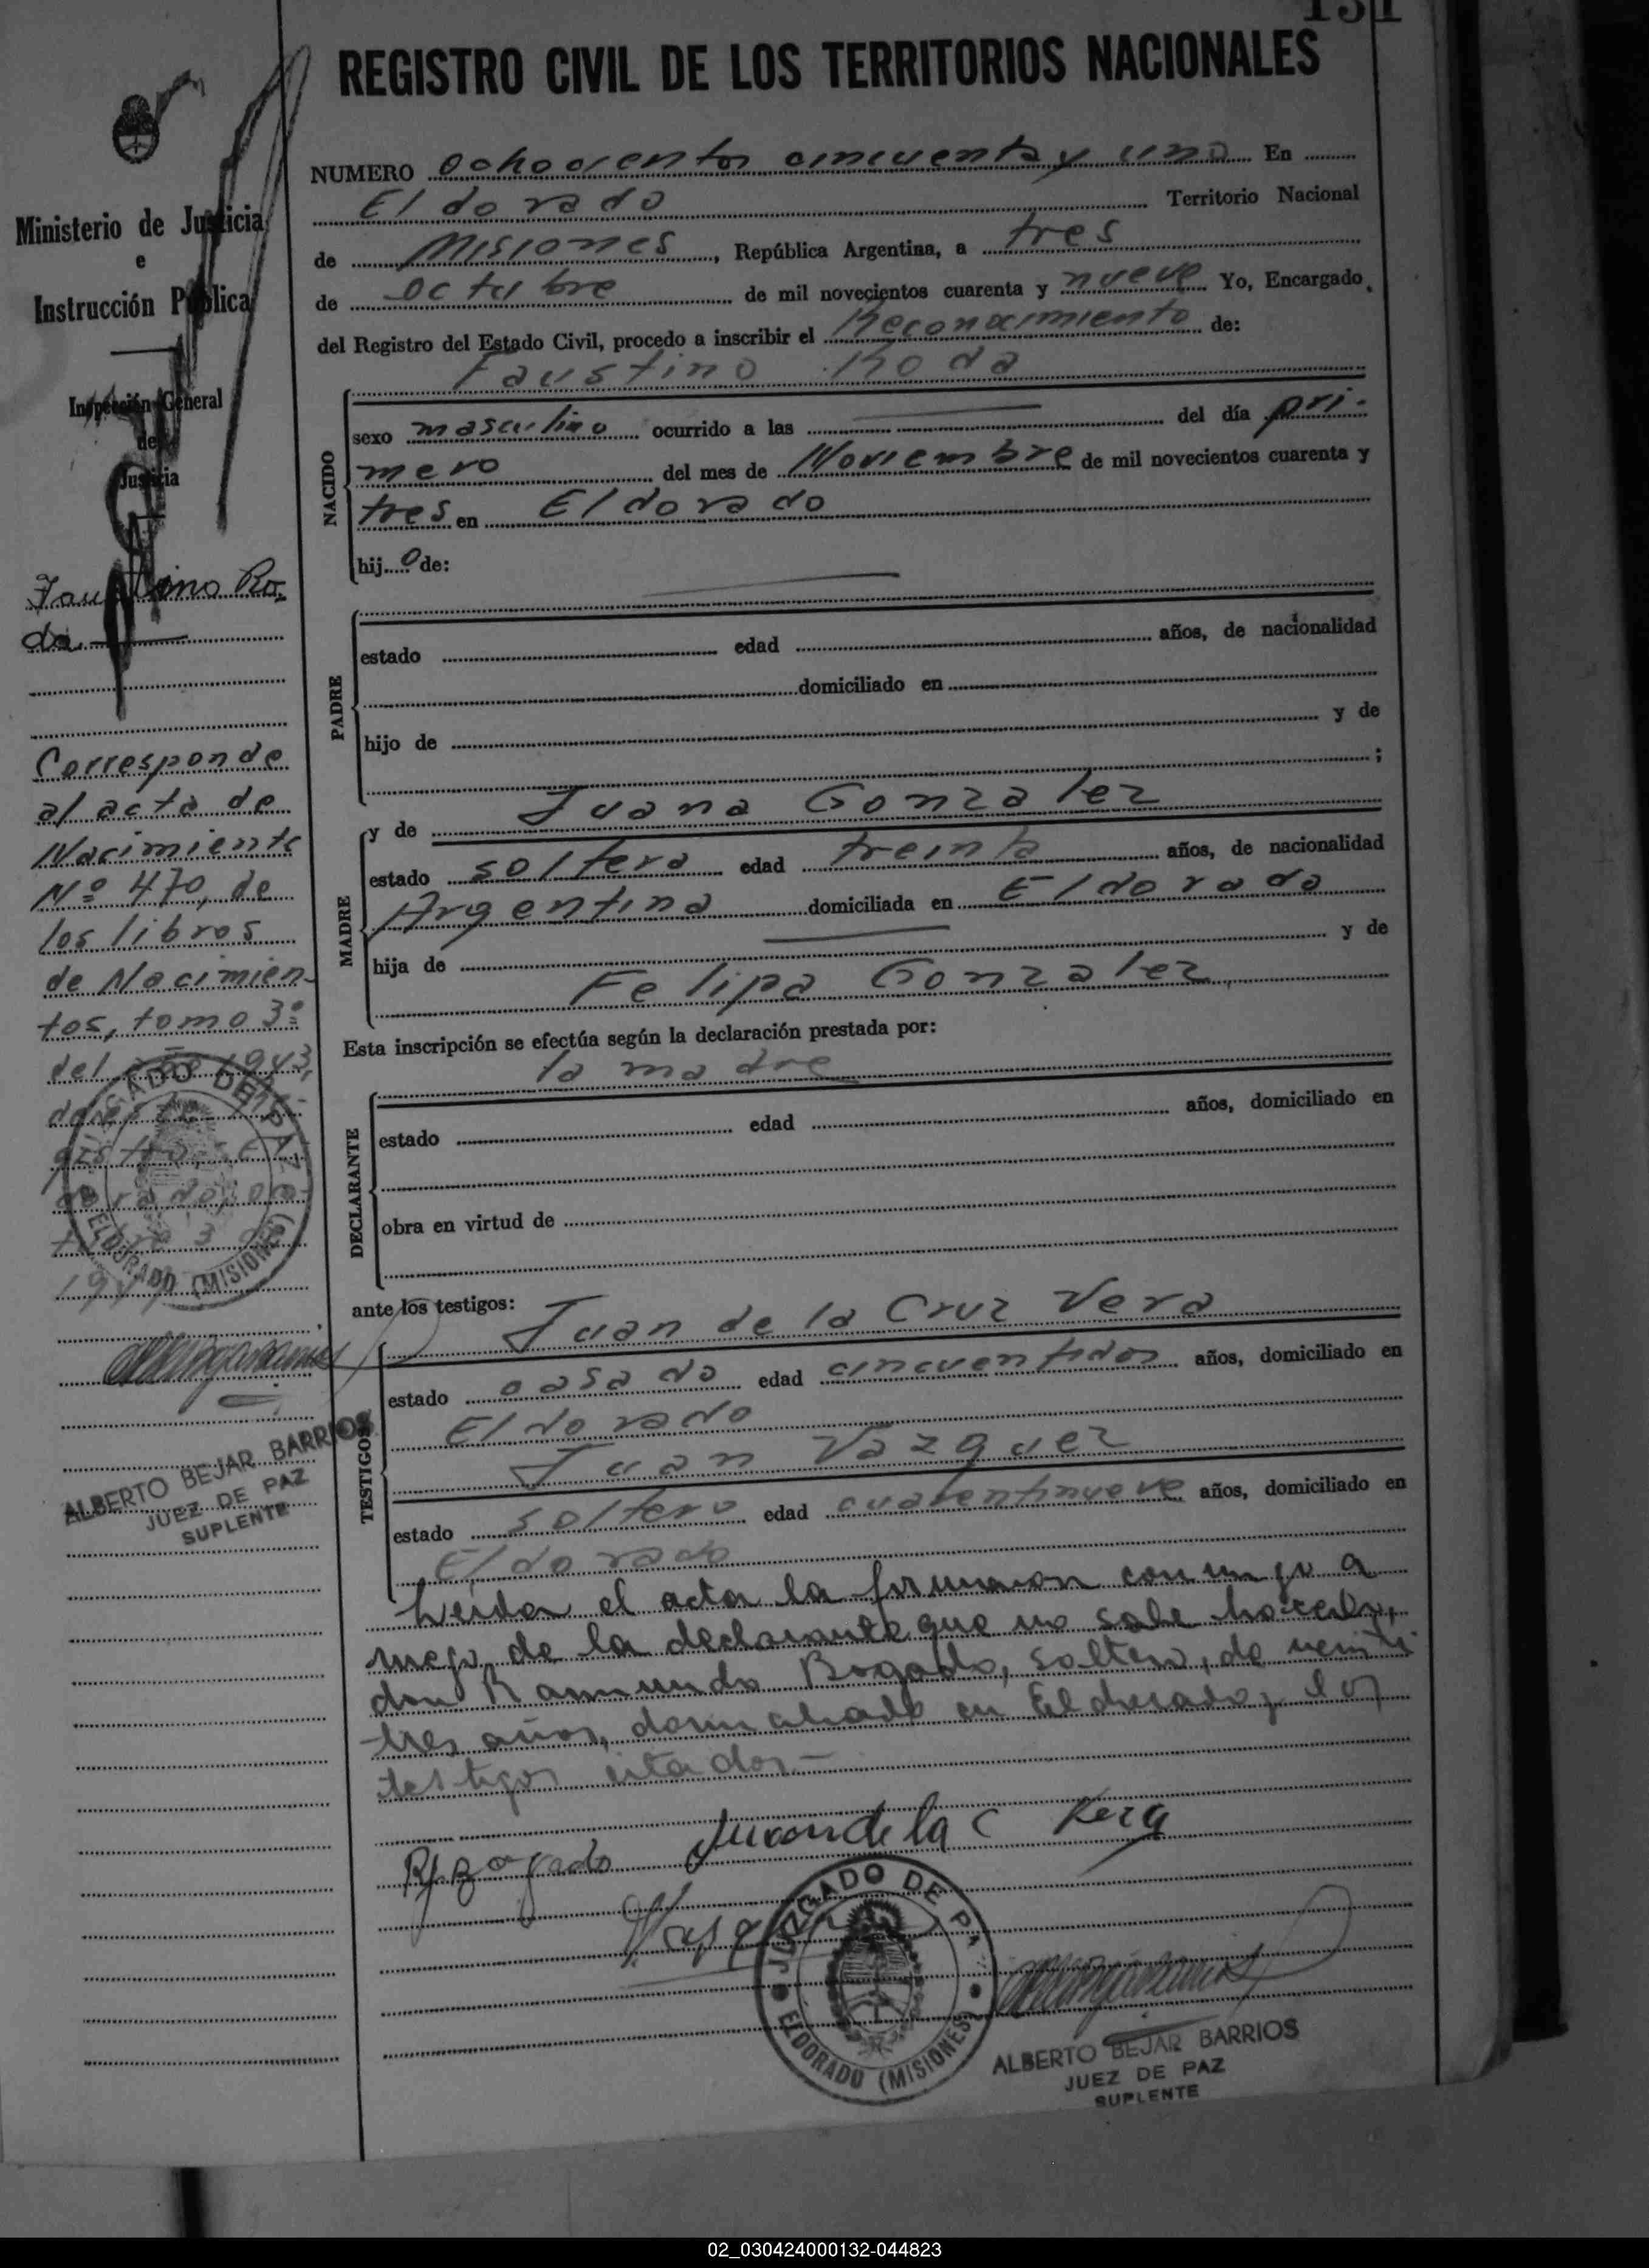 131
REGISTRO CIVIL DE LOS TERRITORIOS NACIONALES
Ministerio de Justicia
e
Instrucción Pública
Inspección General
de
Justicia
Faustino Ro-
da.
Corresponde
al acta de
Nacimiento
Nº 470, de
los libros
de Nacimien-
tos, tomo 3º
del año 1943,
ALBERTO BEJAR BARRIOS
JUEZ DE PAZ
SUPLENTE
NUMERO ochocientos cincuenta y uno En
Eldorado Territorio Nacional
de Misiones, República Argentina, a tres
de octubre de mil novecientos cuarenta y nueve Yo, Encargado
del Registro del Estado Civil, procedo a inscribir el Reconocimiento de:
Faustino Roda
NACIDO
sexo masculino ocurrido a las del día pri-
mero del mes de Noviembre de mil novecientos cuarenta y
tres en Eldorado
hij o de:
PADRE
estado edad años, de nacionalidad
domiciliado en
hijo de y de
;
MADRE
y de Juana Gonzalez
estado soltera edad treinta años, de nacionalidad
Argentina domiciliada en Eldorado
hija de y de
Felipa Gonzalez
Esta inscripción se efectúa según la declaración prestada por:
la madre
DECLARANTE
estado edad años, domiciliado en
obra en virtud de
ante los testigos: Juan de la Cruz Vera
TESTIGOS
estado casado edad cincuentidos años, domiciliado en
Eldorado
Juan Vazquez
estado soltero edad cuarentinueve años, domiciliado en
Eldorado
Leida el acta la firmaron conmigo a
ruego de la declarante que no sabe hacerlo,
don Raimundo Bogado, soltero, de venti
tres años, domiciliado en Eldorado y los
testigos citados.-
R Bogado Juan de la C Vera
JUZGADO DE PAZ
ELDORADO (MISIONES)
ALBERTO BEJAR BARRIOS
JUEZ DE PAZ
SUPLENTE
02_030424000132-044823